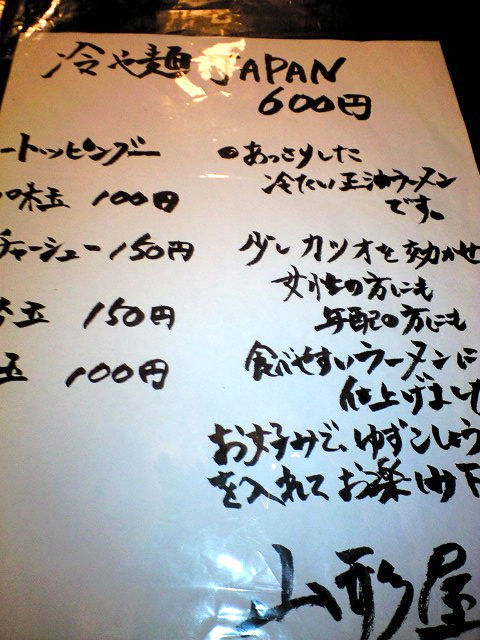 冷や麺 JAPAN
600円
ートッピングー
味玉 100円
チャーシュー 150円
玉 150円
玉 100円
●あっさりした
冷たい正油ラーメン
です。
少しカツオを効かせ
女性の方にも
年配の方にも
食べやすいラーメンに
仕上げまし
お好みで、ゆずこしょう
を入れてお楽しみ下
山形屋